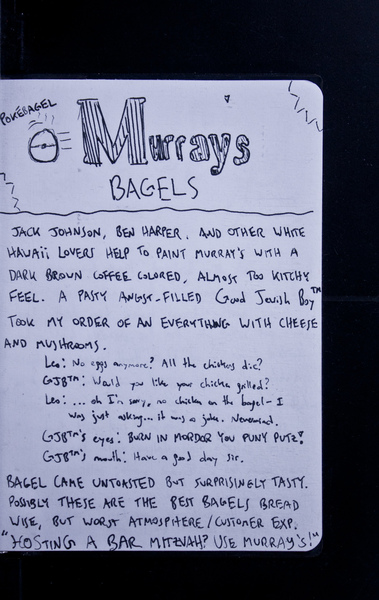 POKÉBAGEL
Murrays
BAGELS
JACK JOHNSON, BEN HARPER, AND OTHER WHITE
HAWAII LOVERS HELP TO PAINT MURRAY'S WITH A
DARK BROWN COFFEE COLORED, ALMOST TOO KITCHY
FEEL. A PASTY ANGST-FILLED Good Jewish Boy™
TOOK MY ORDER OF AN EVERYTHING WITH CHEESE
AND MUSHROOMS.
Leo: No eggs anymore? All the chickens die?
GJB™: Would you like your chicken grilled?
Leo: ... oh I'm sorry, no chicken on the bagel - I
was just asking... it was a joke. Nevermind.
GJB™'s eyes: BURN IN MORDOR YOU PUNY PUTZ!
GJB™'s mouth: Have a good day sir.
BAGEL CAME UNTOASTED BUT SURPRISINGLY TASTY.
POSSIBLY THESE ARE THE BEST BAGELS BREAD
WISE, BUT WORST ATMOSPHERE/CUSTOMER EXP.
"HOSTING A BAR MITZVAH? USE MURRAY'S!"